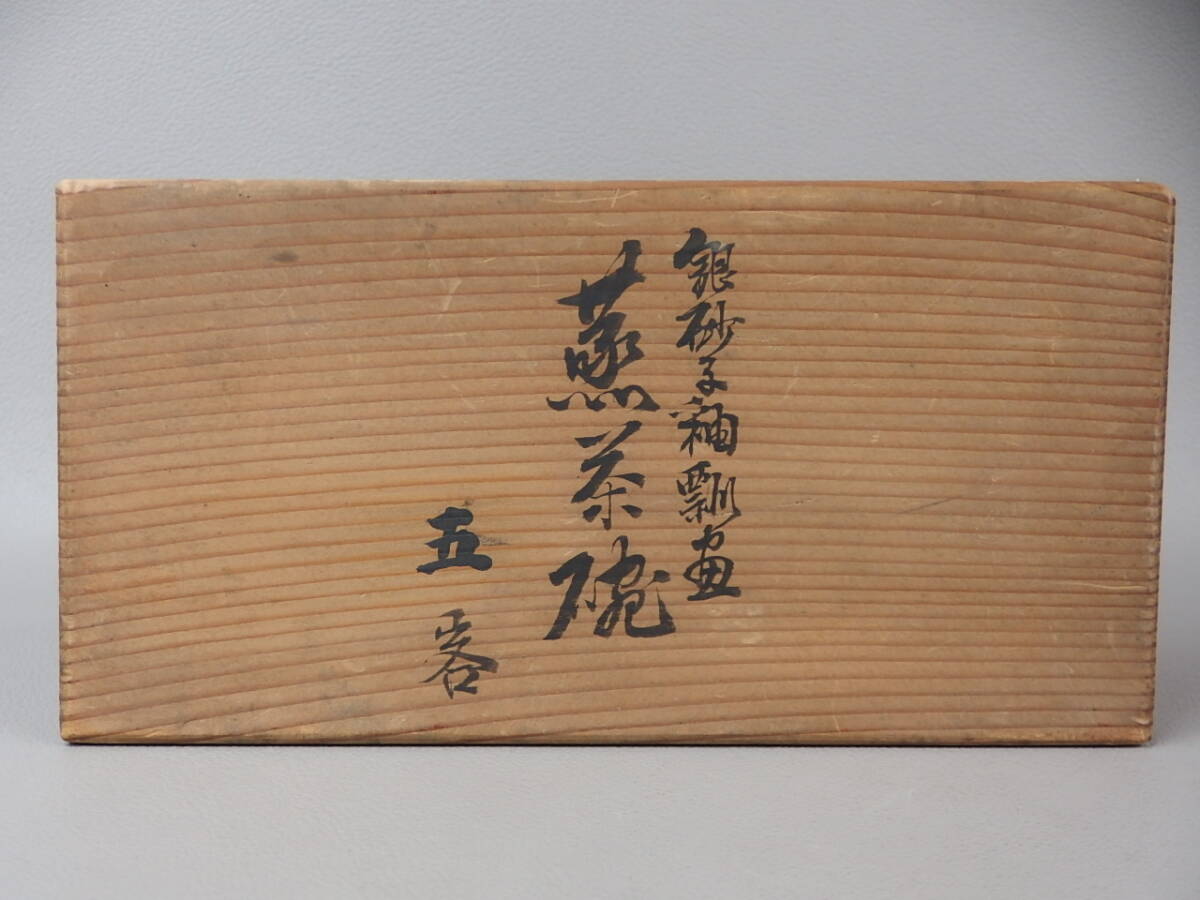 銀砂子釉瓢画
蒸茶碗
五客